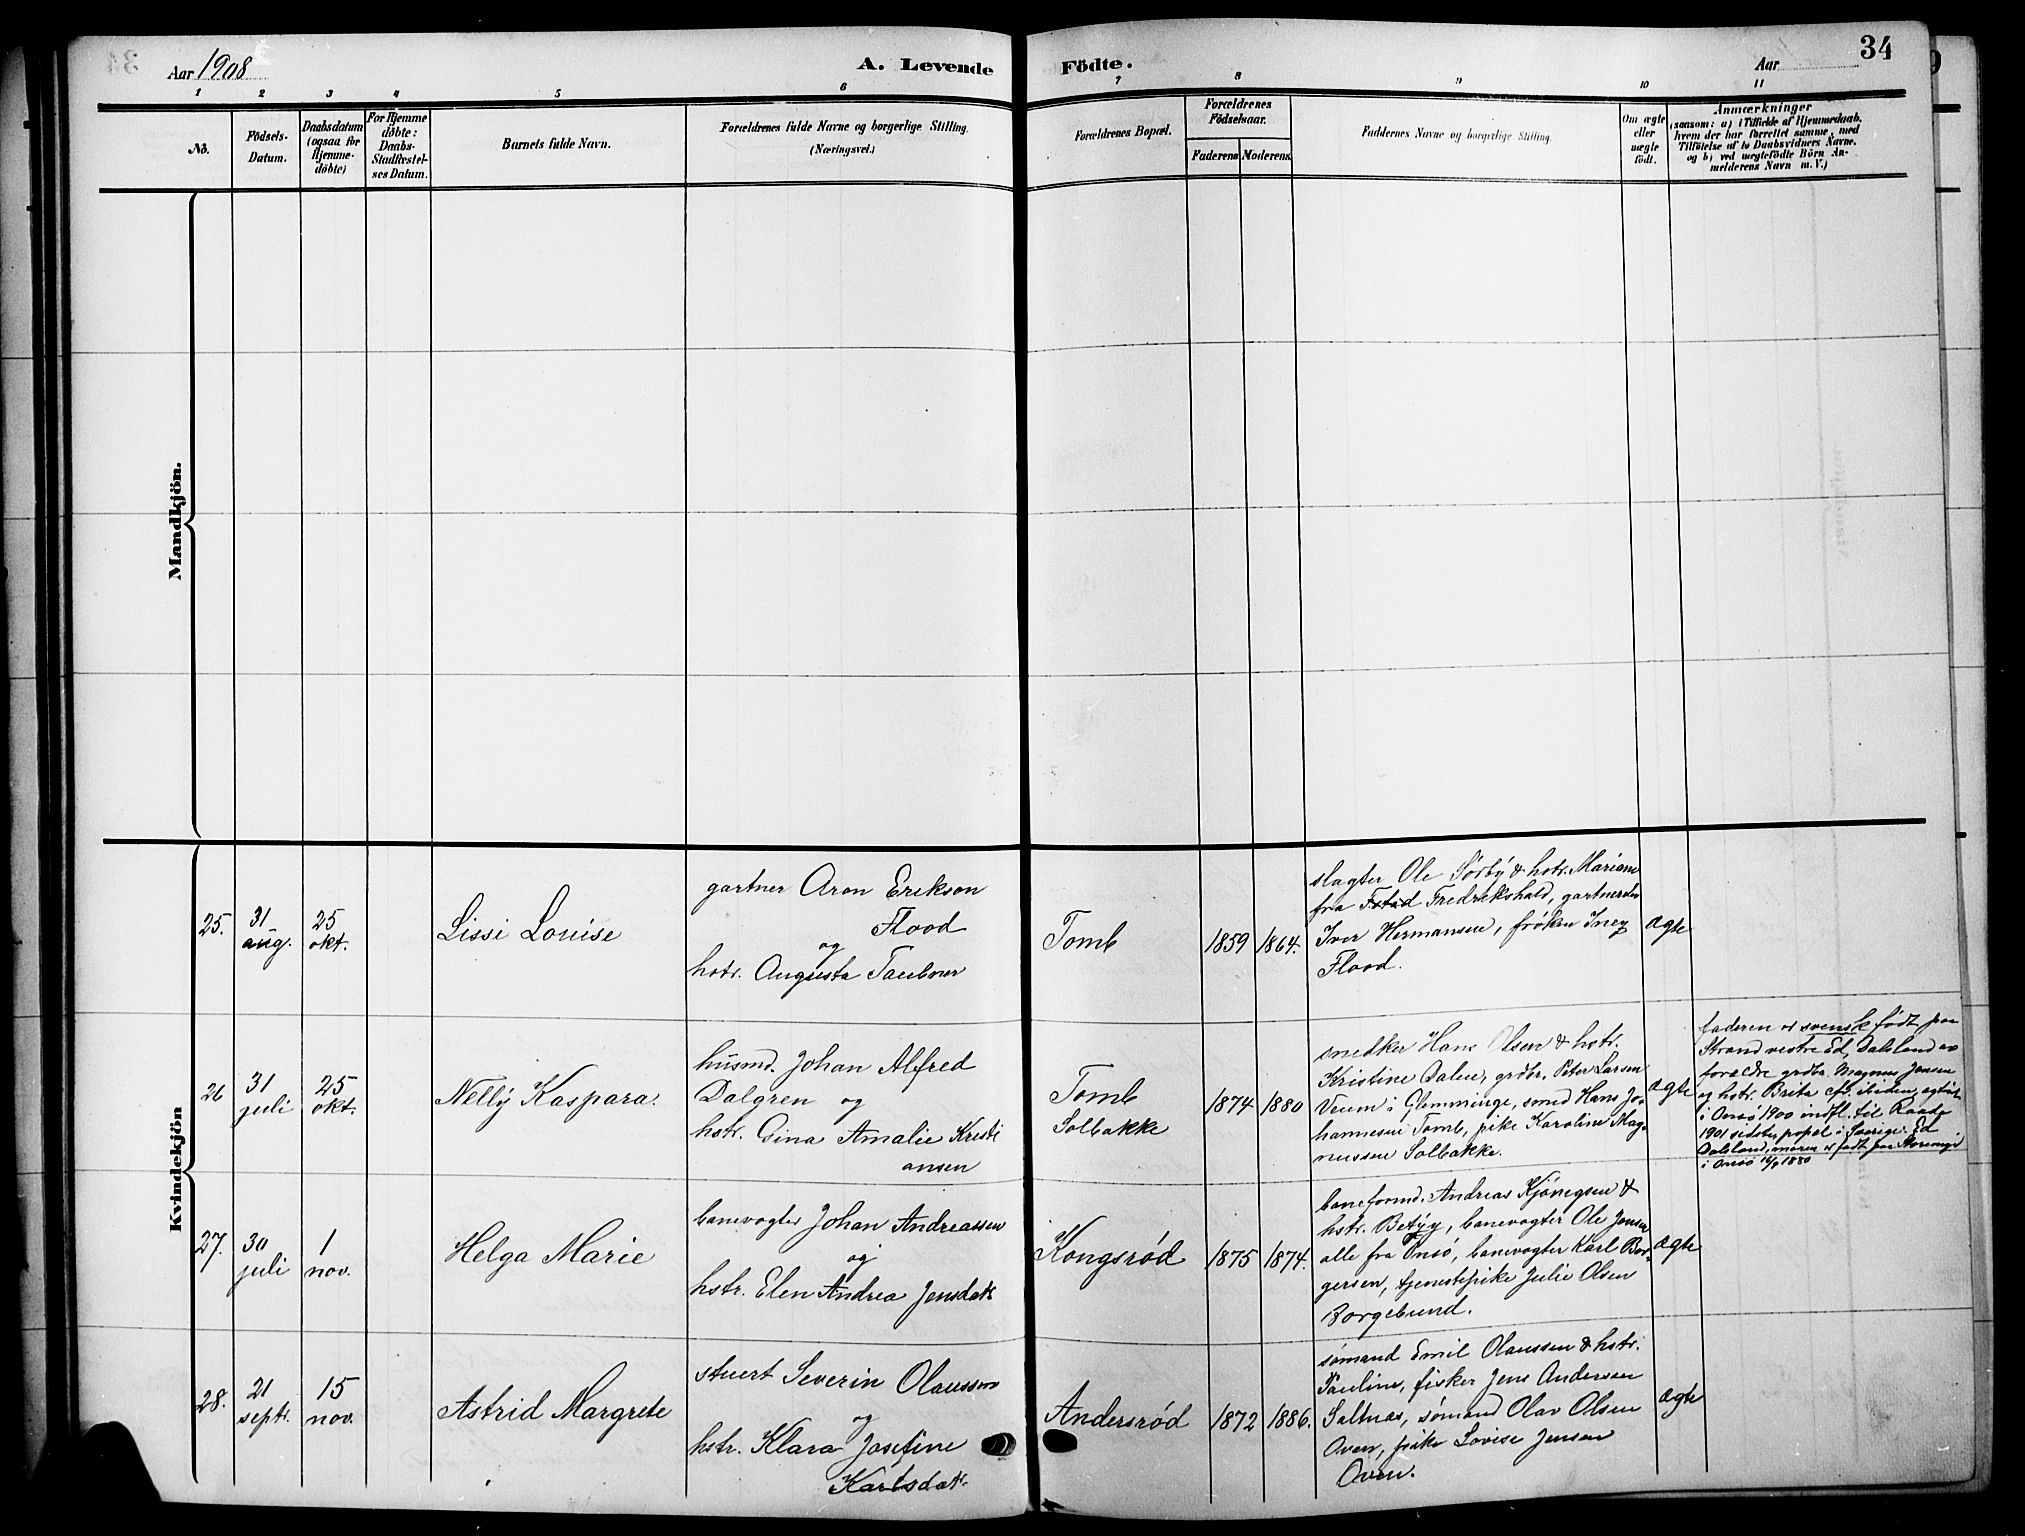 Aar 1908
A. Levende
Födte.
Aar
34
1 2 3 4 5 6 7 8 9 10 11
No.
Födsels-
Datum.
Daabsdatum
(ogsaa for
Hjemme-
döbte)
For Hjemme
döbte:
Daabs-
Stadfæstel-
ses Datum.
Barnets fulde Navn.
Forældrenes fulde Navne og borgerlige Stilling.
(Næringsvei.)
Forældrenes Bopæl.
Forældrenes
Födselsaar.
Faderens Moderens.
Faddernes Navne og borgerlige Stilling.
Om ægte
eller
uægte
födt.
Anmærkninger
(saasom: a) i Tilfælde af Hjemmedaab,
hvem der har forrettet samme, med
Tilföielse af to Daabsvidners Navne.
og b) ved uægtefödte Börn An-
melderens Navn m. V.)
Mandkjön.
Kvindekjön
25.
31
aug.
25
okt.
Lissi Louise
gartner Aron Erikson
Flood
og
hstr. Augusta Taubner
Tomb
1859
1864.
slagter Ole Sörby & hstr. Mariane
fra Fstad Fredrikshald, gartner
Iver Hermansen, fröken Inez
Flood.
ægte
26
31
juli
25
okt.
Nelly Kaspara.
husmd. Johan Alfred
Dalgren og
hstr. Gina Amalie Kristi
ansen
Tomb
Solbakke
1874
1880
snedker Hans Olsen & hstr.
Kristine Dalen, grdbr. Peter Larsen
Veum i Glemminge, smed Hans Jo-
hannesen Tomb, pike Karoline Mag-
nussen Solbakke.
ægte
faderen er svensk født paa
Strand vestre Ed, Dalsland av
forældre grdbr. Magnus Jensen
og hstr. Brita
i Onsö 1900 indfl. til Raade
1901 sidste bopæl i Sverige: Ed
Dalsland, moren er født paa
i Onsö 1880
27.
30
juli
1
nov.
Helga Marie
banevogter Johan Andreassen
og
hstr. Elen Andrea Jensdatr
Kongsrød
1875
1874.
baneformd. Andreas Kjönigsen &
hstr. Betzy, banevogter Ole Jensen
alle fra Onsö, banevogter Karl Bor-
gersen, tjenestepike Julie Olsen
Borgebund.
ægte
28.
21
septr.
15
nov.
Astrid Margrete
stuert Severin Olaussen
og
hstr. Klara Josefine
Karlsdatr.
Andersrød
1872
1886.
sømand Emil Olaussen & hstr.
Pauline, fisker Jens Andersen
Saltnæs, sømand Olav Olsen
Oven, pike Lovise Jensen
Oven.
ægte